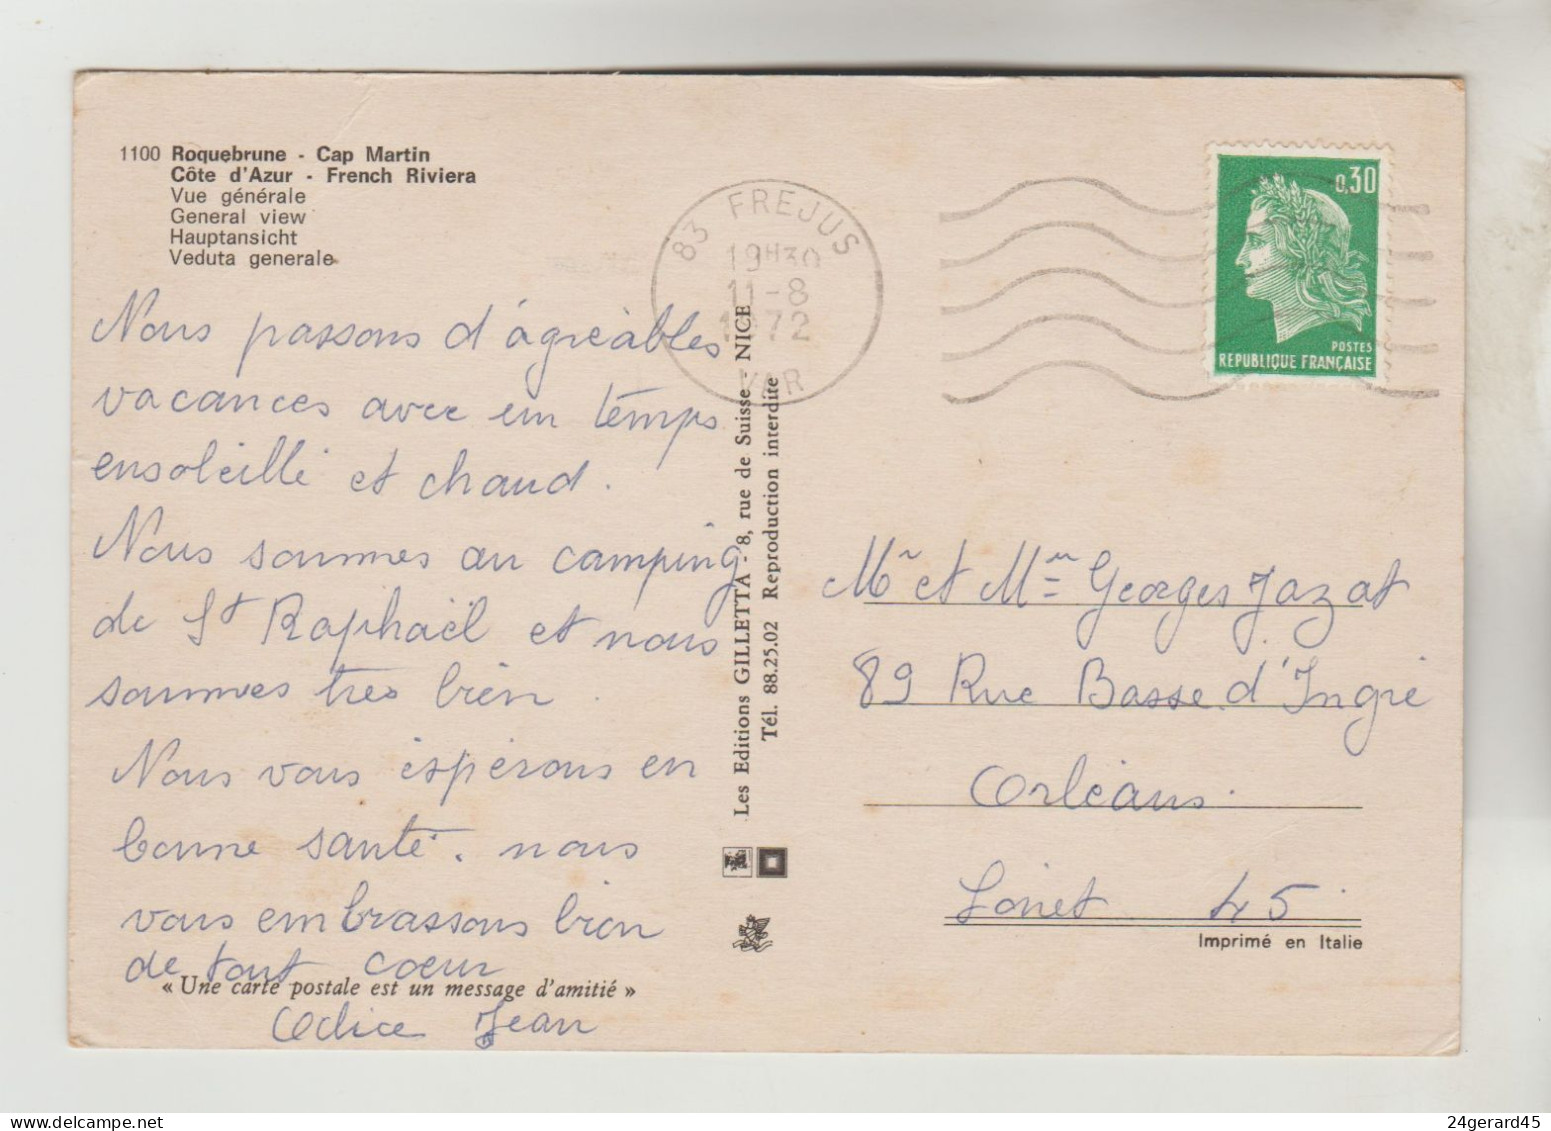 1100 Roquebrune - Cap Martin
Côte d'Azur - French Riviera
Vue générale
General view
Hauptansicht
Veduta generale
83 FREJUS
19H30
11-8
1972
VAR
0,30
POSTES
REPUBLIQUE FRANÇAISE
Nous passons d'agréables
vacances avec un temps
ensoleillé et chaud.
Nous sommes au camping
de St Raphaël et nous
sommes tres bien.
Nous vous espérons en
bonne santé. nous
vous embrassons bien
de tout coeur
« Une carte postale est un message d'amitié »
Odice Jean
Les Editions GILLETTA - 8, rue de Suisse - NICE
Tél. 88.25.02 Reproduction interdite
Mr et Mme Georges Jazat
89 Rue Basse d'Ingré
Orléans.
Loiret 45
Imprimé en Italie
24gerard45